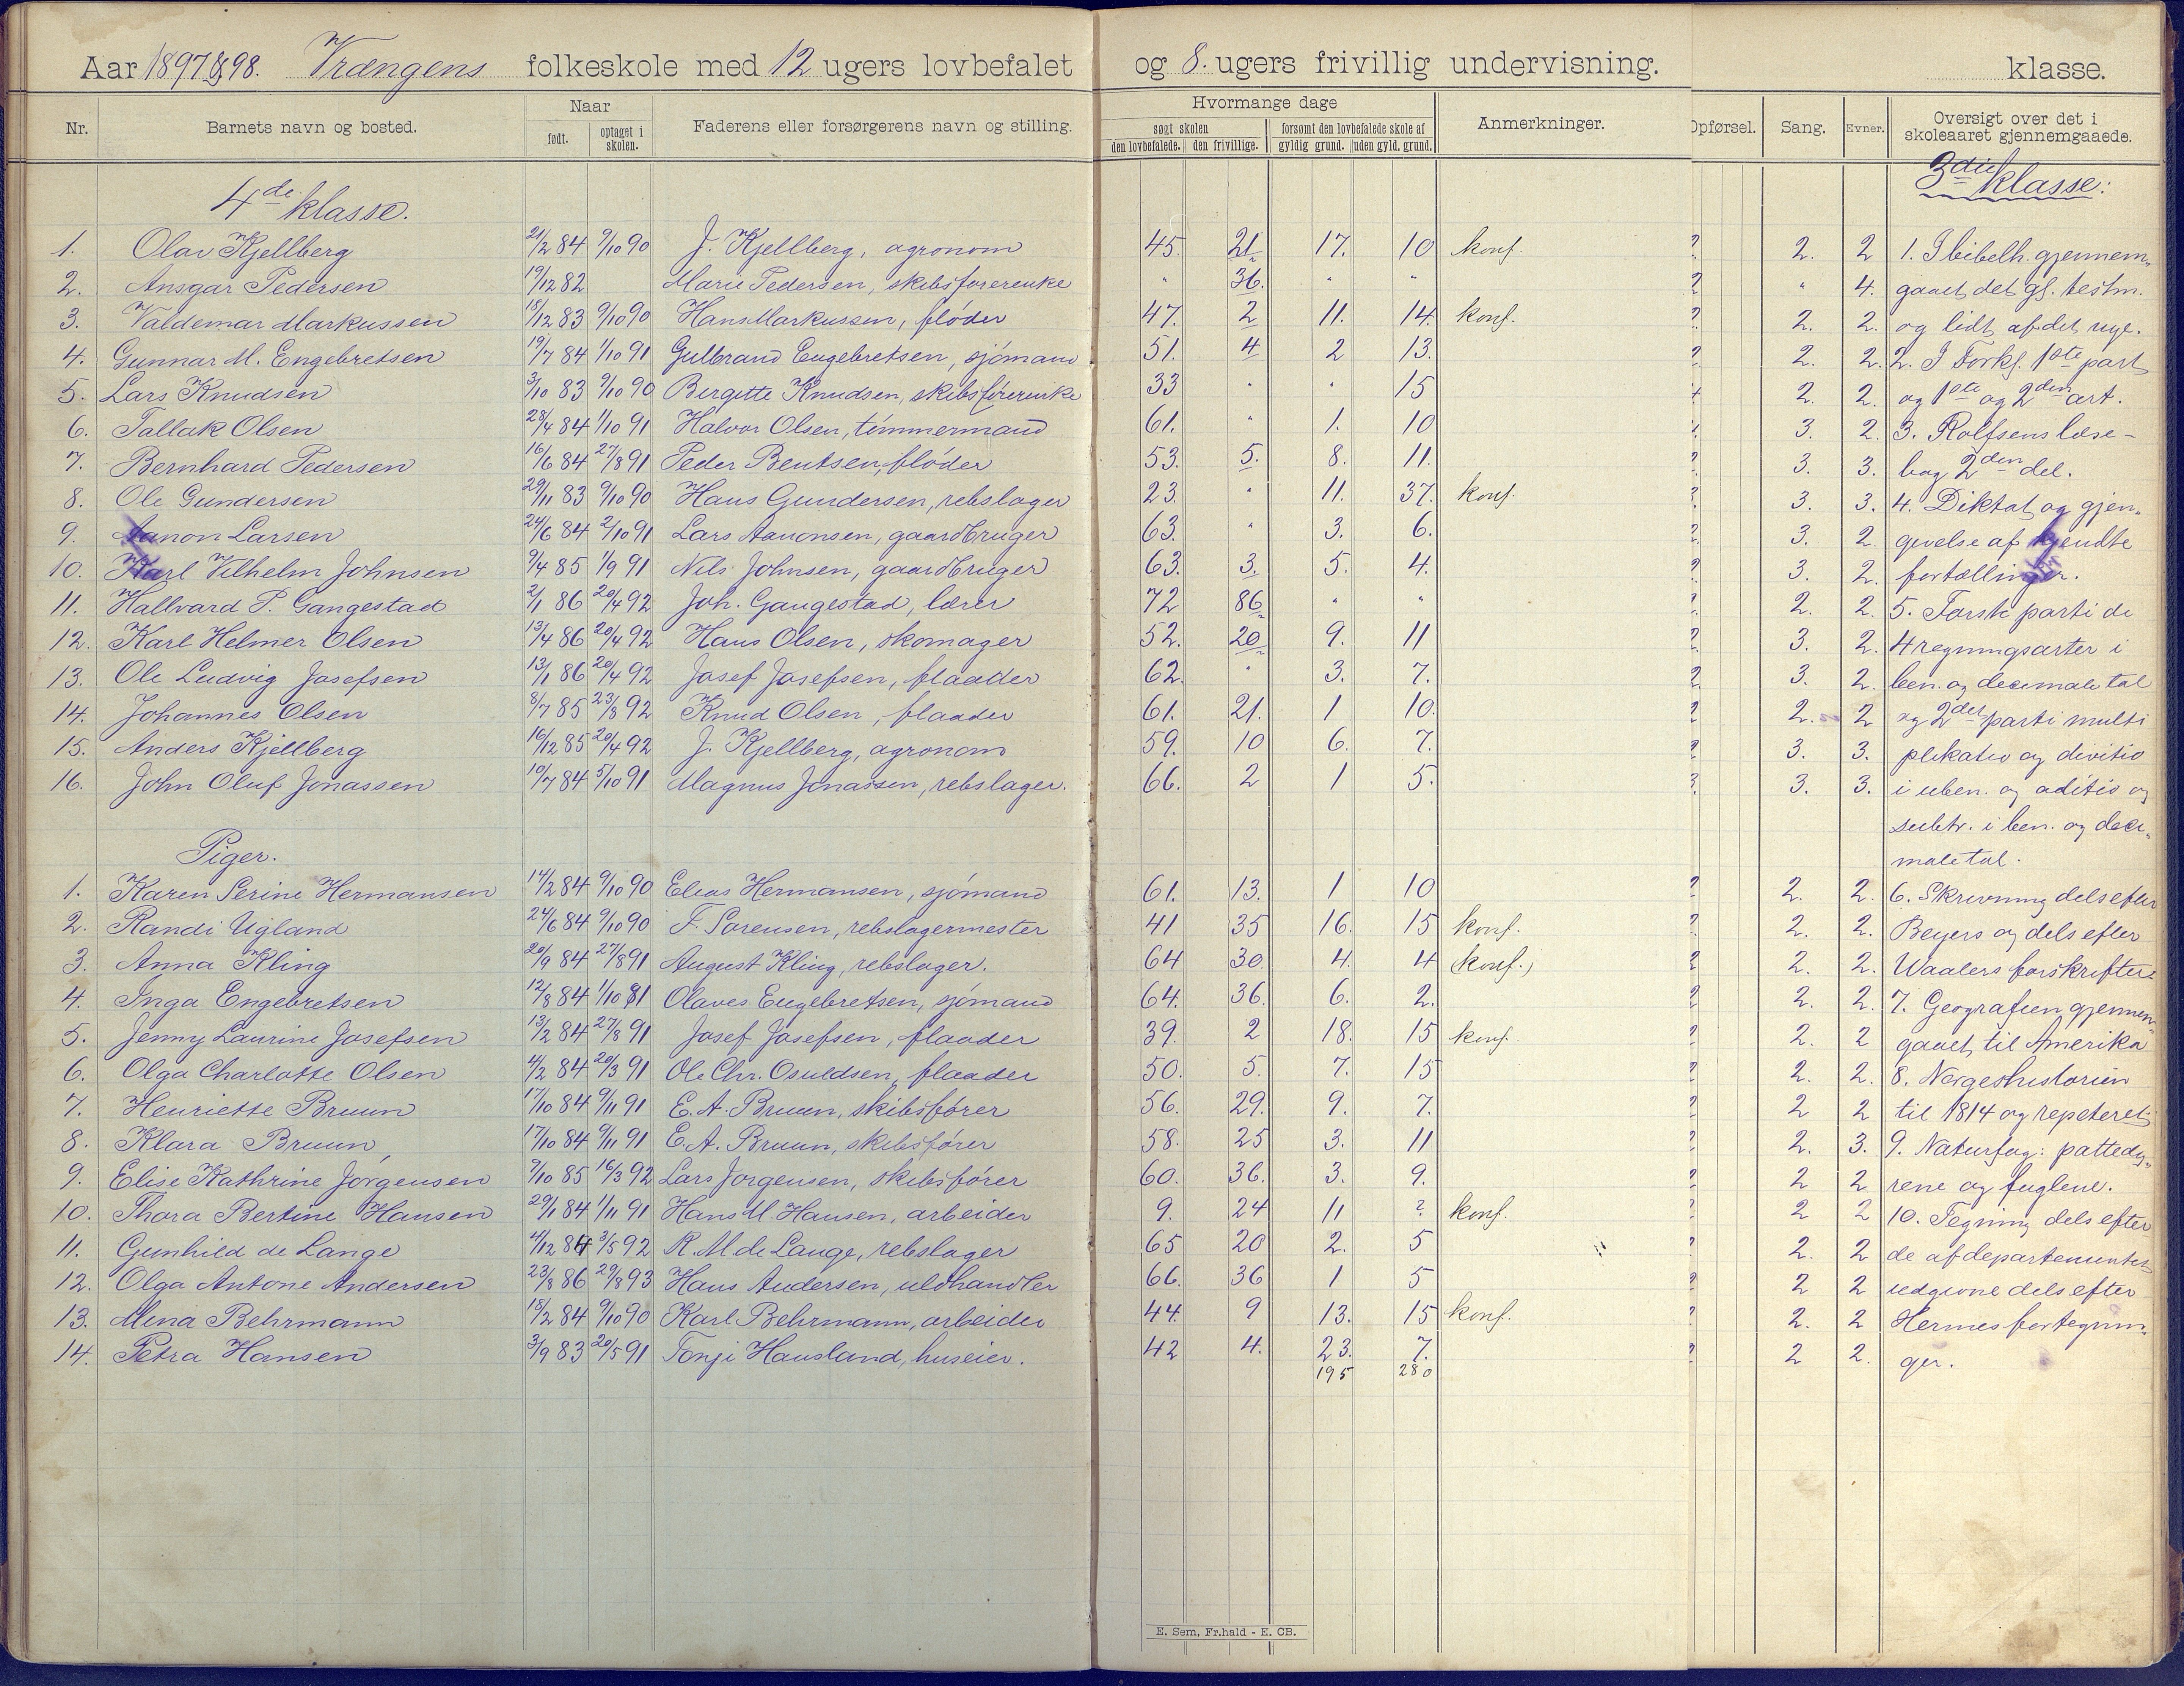 Aar 1897 & 98. Vrængens folkeskole med 12 ugers lovbefalet og 8. ugers frivillig undervisning. klasse.
Nr. Barnets navn og bosted. Naar født. optaget i skolen. Faderens eller forsørgerens navn og stilling. Hvormange dage søgt skolen den lovbefalede. den frivillige. forsømt den lovbefalede skole af gyldig grund. uden gyld. grund. Anmerkninger. Opførsel. Sang. Evner. Oversigt over det i skoleaaret gjennemgaaede.
4de klasse. 3die klasse:
1. Olav Kjellberg 21/2 84 9/10 90 J. Kjellberg, agronom 45. 21 17. 10 konf. 2. 2. 2 1. I bibelh. gjennem-
2. Ansgar Pedersen 19/12 82 Marie Pedersen, skibsførerenke " 36. " " 2 " 4. gaaet det gl. testm.
3. Valdemar Markussen 18/12 83 9/10 90 Hans Markussen, fløder 47. 2 11. 14. konf. 2. 2. 2. og lidt af det nye.
4. Gunnar M. Engebretsen 19/7 84 1/10 91 Gulbrand Engebretsen, sjømand 51. 4 2 13. 2. 2. 2. 2. I Forkl. 1ste part
5. Lars Knudsen 3/10 83 9/10 90 Bergitte Knudsen, skibsførerenke 33 " " 15 2. 2. og 1ste og 2den art.
6. Tallak Olsen 28/4 84 1/10 91 Halvor Olsen, tømmermand 61. " 1. 10 3. 2. 3. Rolfsens læse-
7. Bernhard Pedersen 16/6 84 27/8 91 Peder Bentsen, fløder 53. 5. 8. 11. 2. 3. 3. bog 2den del.
8. Ole Gundersen 29/11 83 9/10 90 Hans Gundersen, rebslager 23. " 11. 37. konf. 3. 3. 4. Diktat og gjen-
9. Aanon Larsen 24/6 84 2/10 91 Lars Aanonsen, gaardbruger 63. " 3. 6. 2. 3. 2. givelse af kjendte
10. Karl Vilhelm Johnsen 9/4 85 1/9 91 Nils Johnsen, gaardbruger 63. 3. 5. 4. 2. 3. 2. fortællinger.
11. Hallvard P. Gangestad 2/1 86 20/4 92 Joh. Gangestad, lærer 72 86 " " 2. 2. 2. 5. Første parti de
12. Karl Helmer Olsen 13/4 86 20/4 92 Hans Olsen, skomager 52. 20 9. 11 2. 3. 2. 4 regningsarter i
13. Ole Ludvig Josefsen 13/1 86 20/4 92 Josef Josefsen, flaader 62. " 3. 7. 2. 3. 2. ben. og decimale tal
14. Johannes Olsen 8/7 85 23/8 92 Knud Olsen, flaader 61. 21. 1 10. 2 2. 2 og 2det parti multi
15. Anders Kjellberg 16/12 85 20/4 92 J. Kjellberg, agronom 59. 10 6. 7. 2 3. 3. plikatio og divitio
16. John Oluf Jonassen 10/7 84 5/10 91 Magnus Jonassen, rebslager. 66. 2 1 5. 3. 3. 3. i uben. og aditio og
subtr. i ben. og deci-
Piger. maletal.
1. Karen Serine Hermansen 14/2 84 9/10 90 Elias Hermansen, sjømand 61. 13. 1 10 2 2. 2. 6. Skrivning dels efter
2. Randi Ugland 24/6 84 9/10 90 F. Sørensen, rebslagermester 41 35 16. 15 konf. 2. 2. 2. Beyers og dels efter
3. Anna Kling 20/9 84 27/8 91 August Kling, rebslager. 64 30 4. 4 (konf.) 2 2. 2. Waalers forskrifter
4. Inga Engebretsen 12/8 84 1/10 81 Olaves Engebretsen, sjømand 64. 36. 6. 2. 2 2. 2. 7. Geografien gjennem-
5. Jenny Laurine Josefsen 13/2 84 27/8 91 Josef Josefsen, flaader 39. 2 18. 15 konf. 2. 2 gaaet til Amerika
6. Olga Charlotte Olsen 4/2 84 20/3 91 Ole Chr. Osuldsen, flaader 50. 5. 7. 15 2. 2. 8. Norgeshistorien
7. Henriette Bruun 17/10 84 9/11 91 E. A. Bruun, skibsfører 56. 29. 9. 7. 2 2 til 1814 og repeteret
8. Klara Bruun 17/10 84 9/11 91 E. A. Bruun, skibsfører 58. 25 3. 11 2. 3. 9. Naturfag: pattedy-
9. Elise Kathrine Jørgensen 7/10 85 16/3 92 Lars Jørgensen, skibsfører 60. 36. 3. 9. 2 2 rene og fuglene.
10. Thora Bertine Hansen 29/1 84 1/11 91 Hans M. Hansen, arbeider 9. 24 11 ? konf. 2 2 10. Tegning dels efter
11. Gunhild de Lange 4/12 84 3/5 92 R. M de Lange, rebslager 65 20 2. 5 2. 2 de af departementet
12. Olga Antone Andersen 23/8 86 29/8 93 Hans Andersen, uldhandler 66. 36 1 5 2 2 udgivne dels efter
13. Mina Behrmann 18/2 84 9/10 90 Karl Behrmann, arbeider 44. 9 13. 15 konf. 2. 2 Hermes fortegnin-
14. Petra Hansen 3/9 83 20/5 91 Tonje Hausland, huseier. 42 4. 23. 7. 2 2. ger.
195 280
E. Sem, Fr.hald - E. CB.